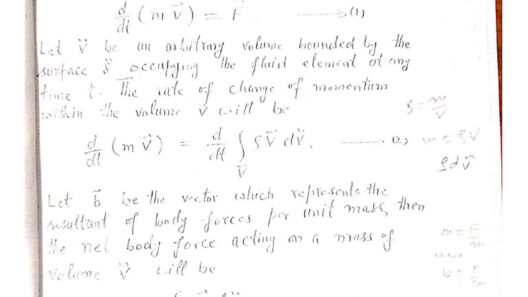 d/dt (m v⃗) = F⃗ → (1)
Let v⃗ be an arbitrary volume bounded by the
surface s⃗ occupying the fluid element at any
time t. The rate of change of momentum
within the volume v⃗ will be
ρ = m/v
d/dt (m v⃗) = d/dt ∫ ρ v⃗ dv⃗. → (2) m = ρV
v⃗
ρdv⃗
Let b⃗ be the vector which represents the
resultant of body forces per unit mass, then
the net body force acting on a mass of
volume v⃗ will be
b = F/m